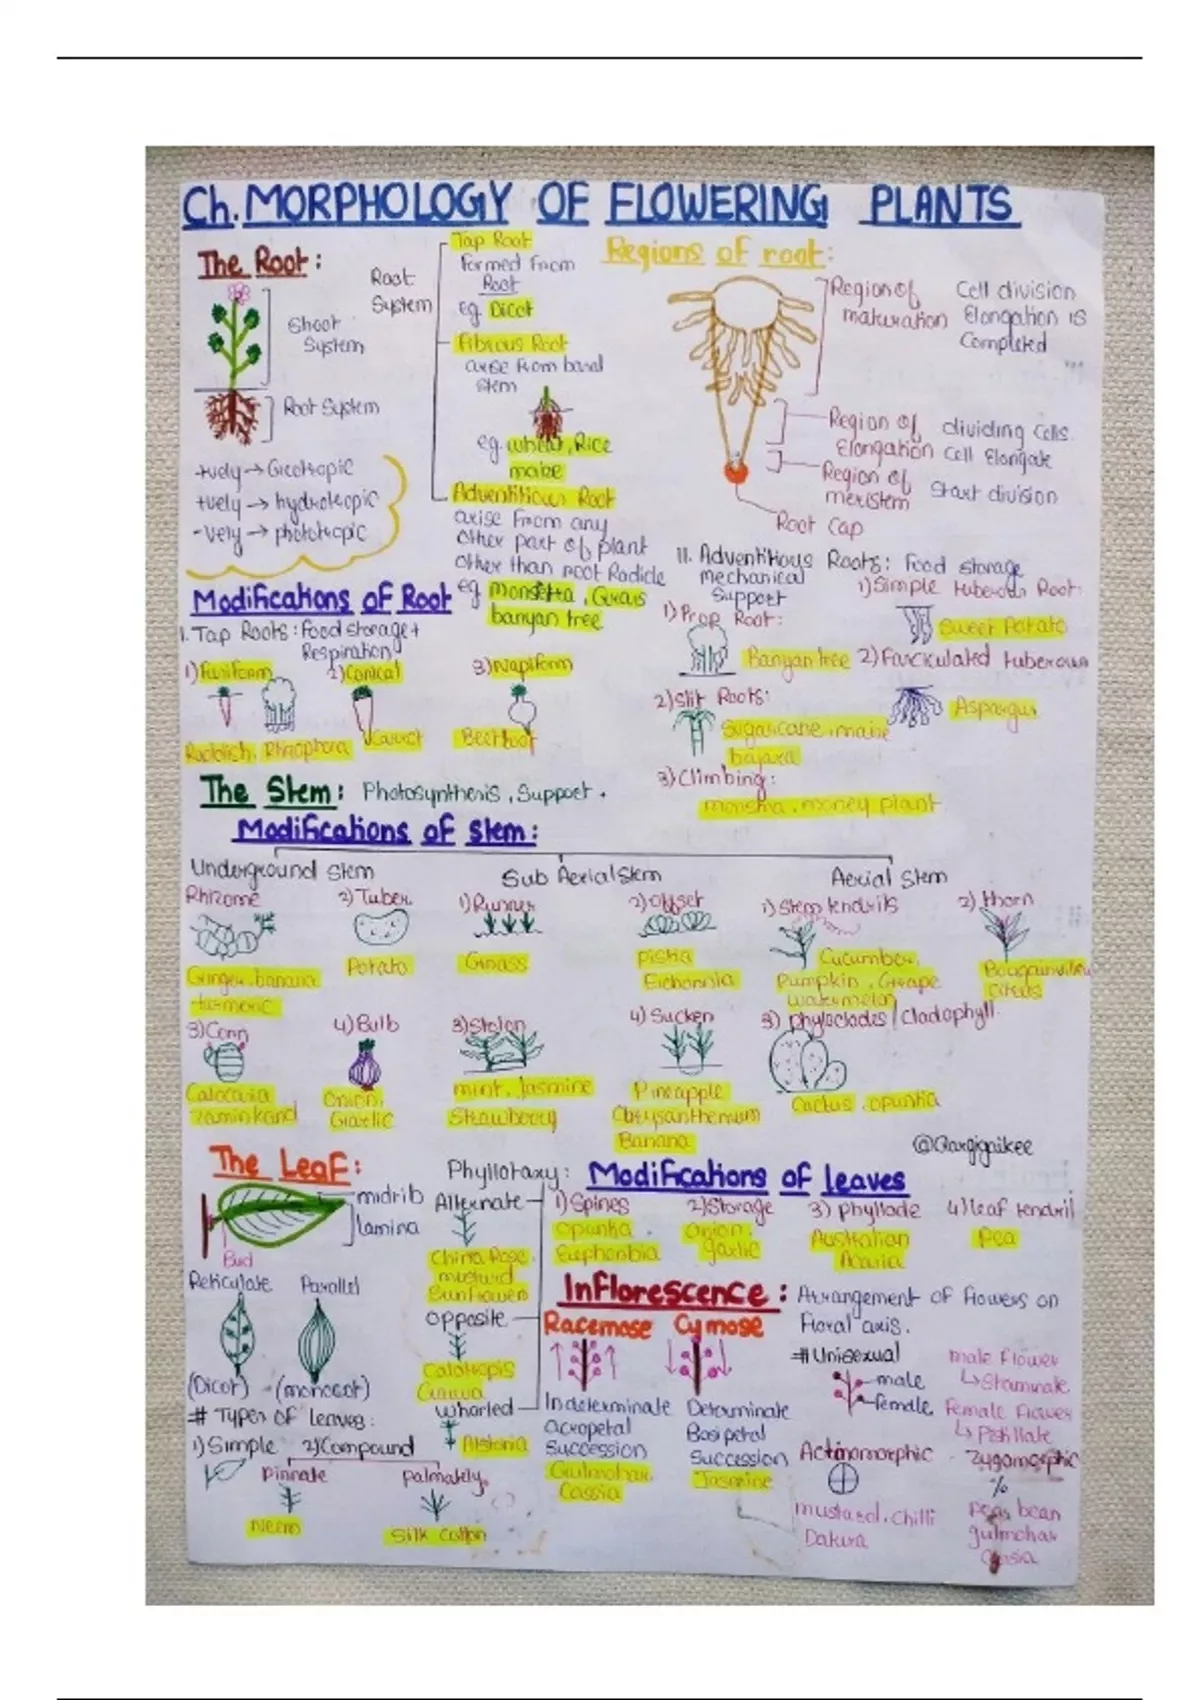 Ch. MORPHOLOGY OF FLOWERING PLANTS
The Root:
Shoot
System
Root System
+vely → Geotropic
+vely → hydrotropic
-vely → phototropic
Root
System
Tap Root
formed from
Root
eg. Dicot
Fibrous Root
arise from basal
stem
eg. wheat, Rice
maize
Adventitious Root
arise from any
other part of plant
other than root Radicle
eg
banyan tree
Regions of root:
Region of
maturation
Cell division
Elongation is
Completed
Region of
Elongation
dividing cells.
Cell Elongate
Region of
meristem
Start division
Root Cap
Modifications of Root
1. Tap Roots: Food storage +
Respiration
1) Fusiform
2) Conical
3) Napiform
Carrot
II. Adventitious Roots: Food storage
mechanical
Support
1) Prop Root:
Banyan tree
2) Stilt Roots:
Sugarcane, maize
bajara
3) Climbing:
money plant
1) Simple tuberous Root:
Sweet Potato
2) Fasciculated tuberous
The Stem: Photosynthesis, Support.
Modifications of stem:
Underground Stem
Sub Aerial Stem
Aerial Stem
Rhizome
Ginger, banana
turmeric
2) Tuber
Potato
1) Runner
Grass
2) Offset
Pistia
Eichornia
1) Stem tendrils
Cucumber,
Pumpkin, Grape
watermelon
2) thorn
Citrus
3) Corm
4) Bulb
Onion,
Garlic
3) Stolon
mint, Jasmine
Strawberry
4) Sucker
Pineapple
Banana
3) phylloclades / Cladophyll
Cactus, opuntia
The Leaf:
midrib
lamina
Bud
Reticulate
Parallel
(Dicot) - (monocot)
# Types of leaves:
1) Simple
2) Compound
Pinnate
Neem
palmately
Silk cotton
Phyllotaxy:
Alternate
China Rose,
mustard
Sunflower
opposite
Calotropis
Guava
Whorled
Alstonia
Modifications of leaves
1) Spines
opuntia,
Euphorbia
2) Storage
Onion,
garlic
3) phyllode
Australian
Acacia
4) leaf tendril
Pea
Inflorescence: Arrangement of flowers on
floral axis.
Racemose
Indeterminate
acropetal
Succession
Gulmohar
Cassia
Cymose
Determinate
Basipetal
Succession
Jasmine
# Unisexual
male
female
male flower
↳ Staminate
Female flower
↳ Pistillate
Actinomorphic
mustard, chilli
Datura
Zygomorphic
%
bean
gulmohar